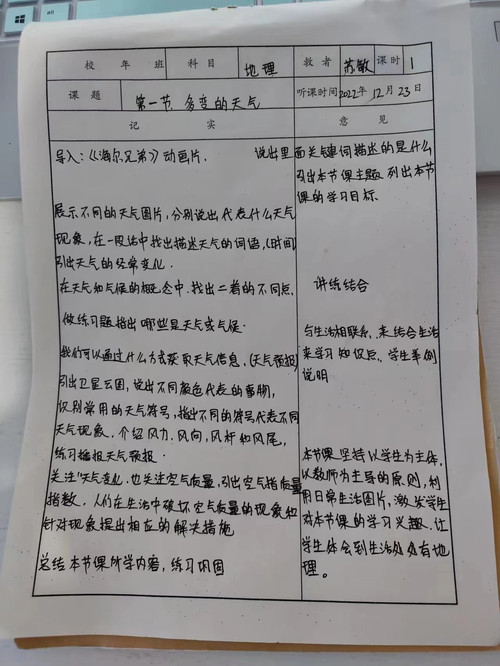 校 年 班 科目 地理 教者 苏敏 课时 1
课题 第一节 多变的天气 听课时间 2022年12月23日
记 实 意 见
导入：《海尔兄弟》动画片. 说出里面关键词描述的是什么
引出本节课主题.列出本节
课的学习目标.
展示不同的天气图片，分别说出代表什么天气
现象，在一段话中找出描述天气的词语，(时间)
引出天气的经常变化.
在天气和气候的概念中，找出二者的不同点.
讲练结合
做练习题指出哪些是天气或气候.
与生活相联系，来结合生活
来学习知识后，学生举例
说明
我们可以通过什么方式获取天气信息，(天气预报)
引出卫星云图，说出不同颜色代表的事物，
识别常用的天气符号，指出不同的符号代表不同
天气现象，介绍风力、风向，风杆和风尾，
练习播报天气预报.
关注天气变化，也关注空气质量，引出空气指质量
指数，人们在生活中破坏空气质量的现象和
针对现象提出相应的解决措施
总结本节课所学内容，练习巩固
本节课坚持以学生为主体，
以教师为主导的原则，利
用日常生活图片，激发学生
对本节课的学习兴趣，让
学生体会到生活处处有地
理。